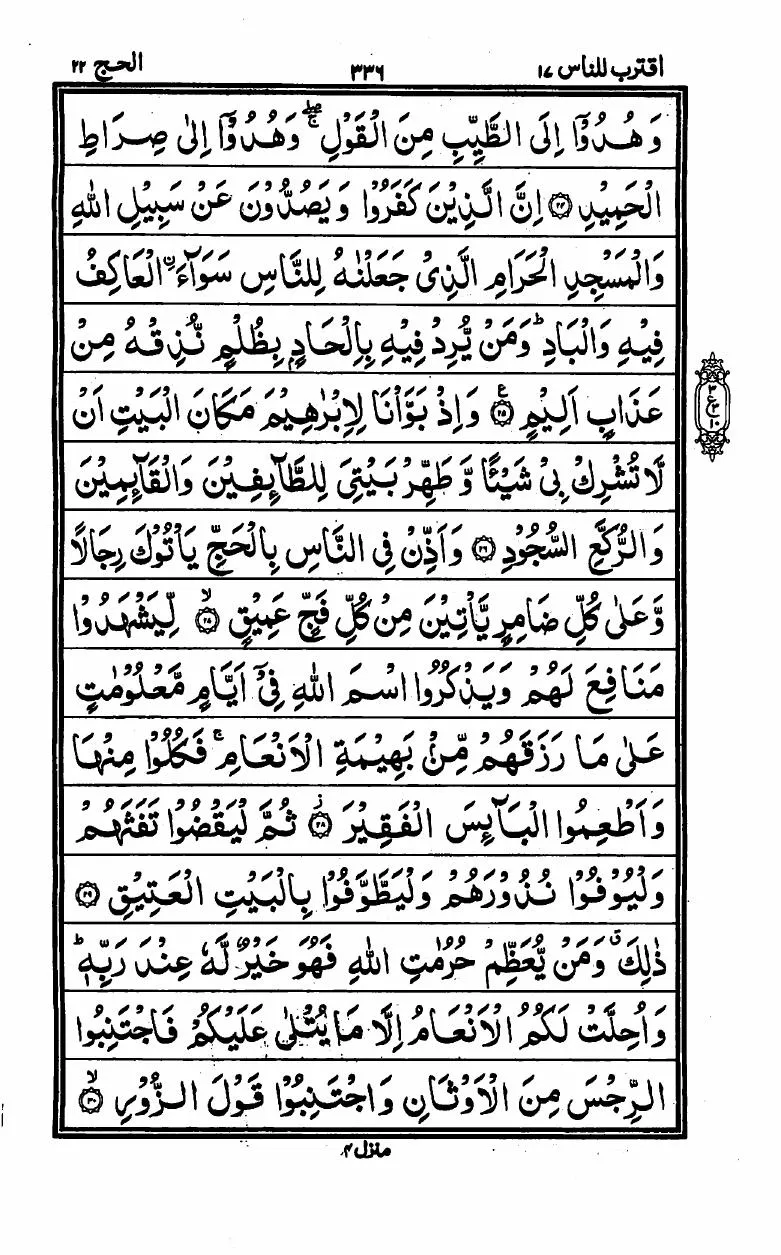 اقترب للناس ۱۷ ۳۳۶ الحج ۲۲
وَهُدُوْۤا اِلَى الطَّيِّبِ مِنَ الْقَوْلِ ۚۖ وَهُدُوْۤا اِلٰى صِرَاطِ
الْحَمِيْدِ ﴿۲۴﴾ اِنَّ الَّذِيْنَ كَفَرُوْا وَيَصُدُّوْنَ عَنْ سَبِيْلِ اللّٰهِ
وَالْمَسْجِدِ الْحَرَامِ الَّذِىْ جَعَلْنٰهُ لِلنَّاسِ سَوَآءَ ۨالْعَاكِفُ
فِيْهِ وَالْبَادِ ؕ وَمَنْ يُّرِدْ فِيْهِ بِاِلْحَادٍۭ بِظُلْمٍ نُّذِقْهُ مِنْ
عَذَابٍ اَلِيْمٍ ﴿۲۵﴾ وَاِذْ بَوَّاْنَا لِاِبْرٰهِيْمَ مَكَانَ الْبَيْتِ اَنْ
لَّا تُشْرِكْ بِىْ شَيْئًا وَّطَهِّرْ بَيْتِىَ لِلطَّآئِفِيْنَ وَالْقَآئِمِيْنَ
وَالرُّكَّعِ السُّجُوْدِ ﴿۲۶﴾ وَاَذِّنْ فِى النَّاسِ بِالْحَجِّ يَاْتُوْكَ رِجَالًا
وَّعَلٰى كُلِّ ضَامِرٍ يَّاْتِيْنَ مِنْ كُلِّ فَجٍّ عَمِيْقٍ ۙ﴿۲۷﴾ لِّيَشْهَدُوْا
مَنَافِعَ لَهُمْ وَيَذْكُرُوا اسْمَ اللّٰهِ فِىْۤ اَيَّامٍ مَّعْلُوْمٰتٍ
عَلٰى مَا رَزَقَهُمْ مِّنْۢ بَهِيْمَةِ الْاَنْعَامِ ۚ فَكُلُوْا مِنْهَا
وَاَطْعِمُوا الْبَآئِسَ الْفَقِيْرَ ۫﴿۲۸﴾ ثُمَّ لْيَقْضُوْا تَفَثَهُمْ
وَلْيُوْفُوْا نُذُوْرَهُمْ وَلْيَطَّوَّفُوْا بِالْبَيْتِ الْعَتِيْقِ ﴿۲۹﴾
ذٰلِكَ ۗ وَمَنْ يُّعَظِّمْ حُرُمٰتِ اللّٰهِ فَهُوَ خَيْرٌ لَّهٗ عِنْدَ رَبِّهٖ ؕ
وَاُحِلَّتْ لَكُمُ الْاَنْعَامُ اِلَّا مَا يُتْلٰى عَلَيْكُمْ فَاجْتَنِبُوا
الرِّجْسَ مِنَ الْاَوْثَانِ وَاجْتَنِبُوْا قَوْلَ الزُّوْرِ ۙ﴿۳۰﴾
۳
ع ۳
۱۰
منزل ۴